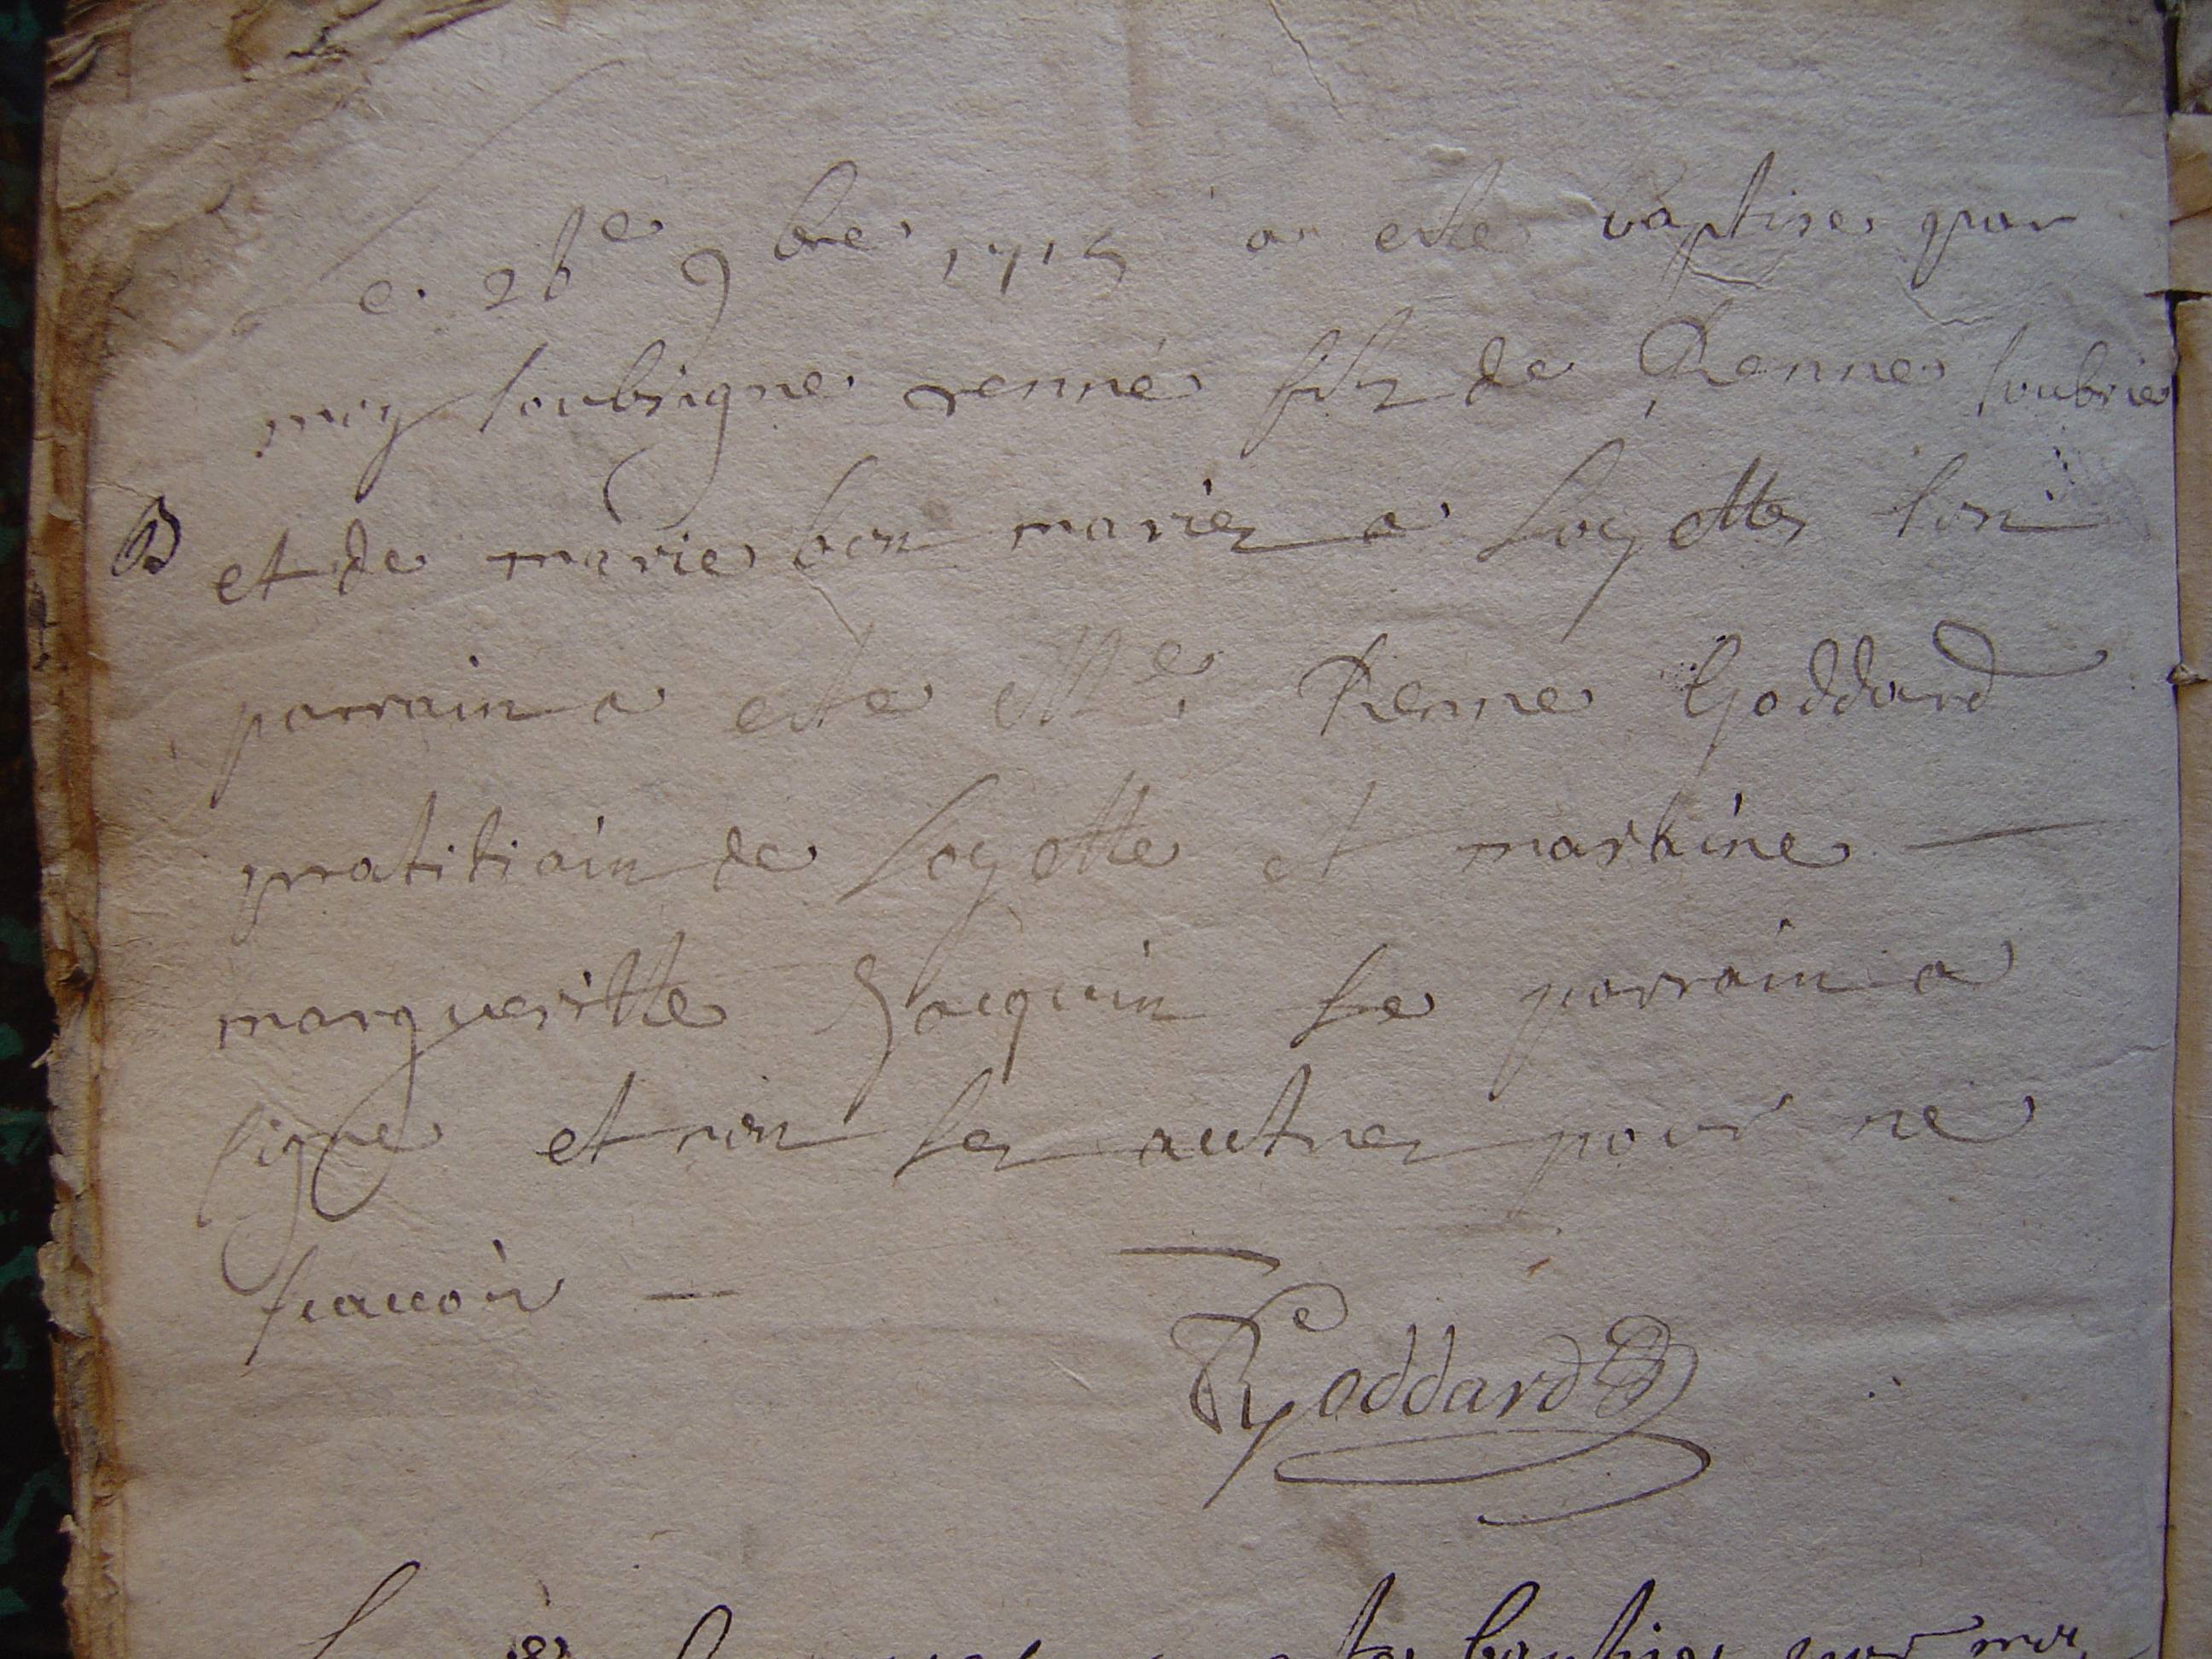 Le 26e 9bre 1715 a este baptise par
moy soubsigne renné fils de Renne soubrier
B
et de marie bon mariez a Loyettes son
parrain a este Me Renne Goddard
pratitiain de Loyette et martine
margueritte Jacquin Le parrain a
signe et non les autres pour ne
scauoir
R Goddard